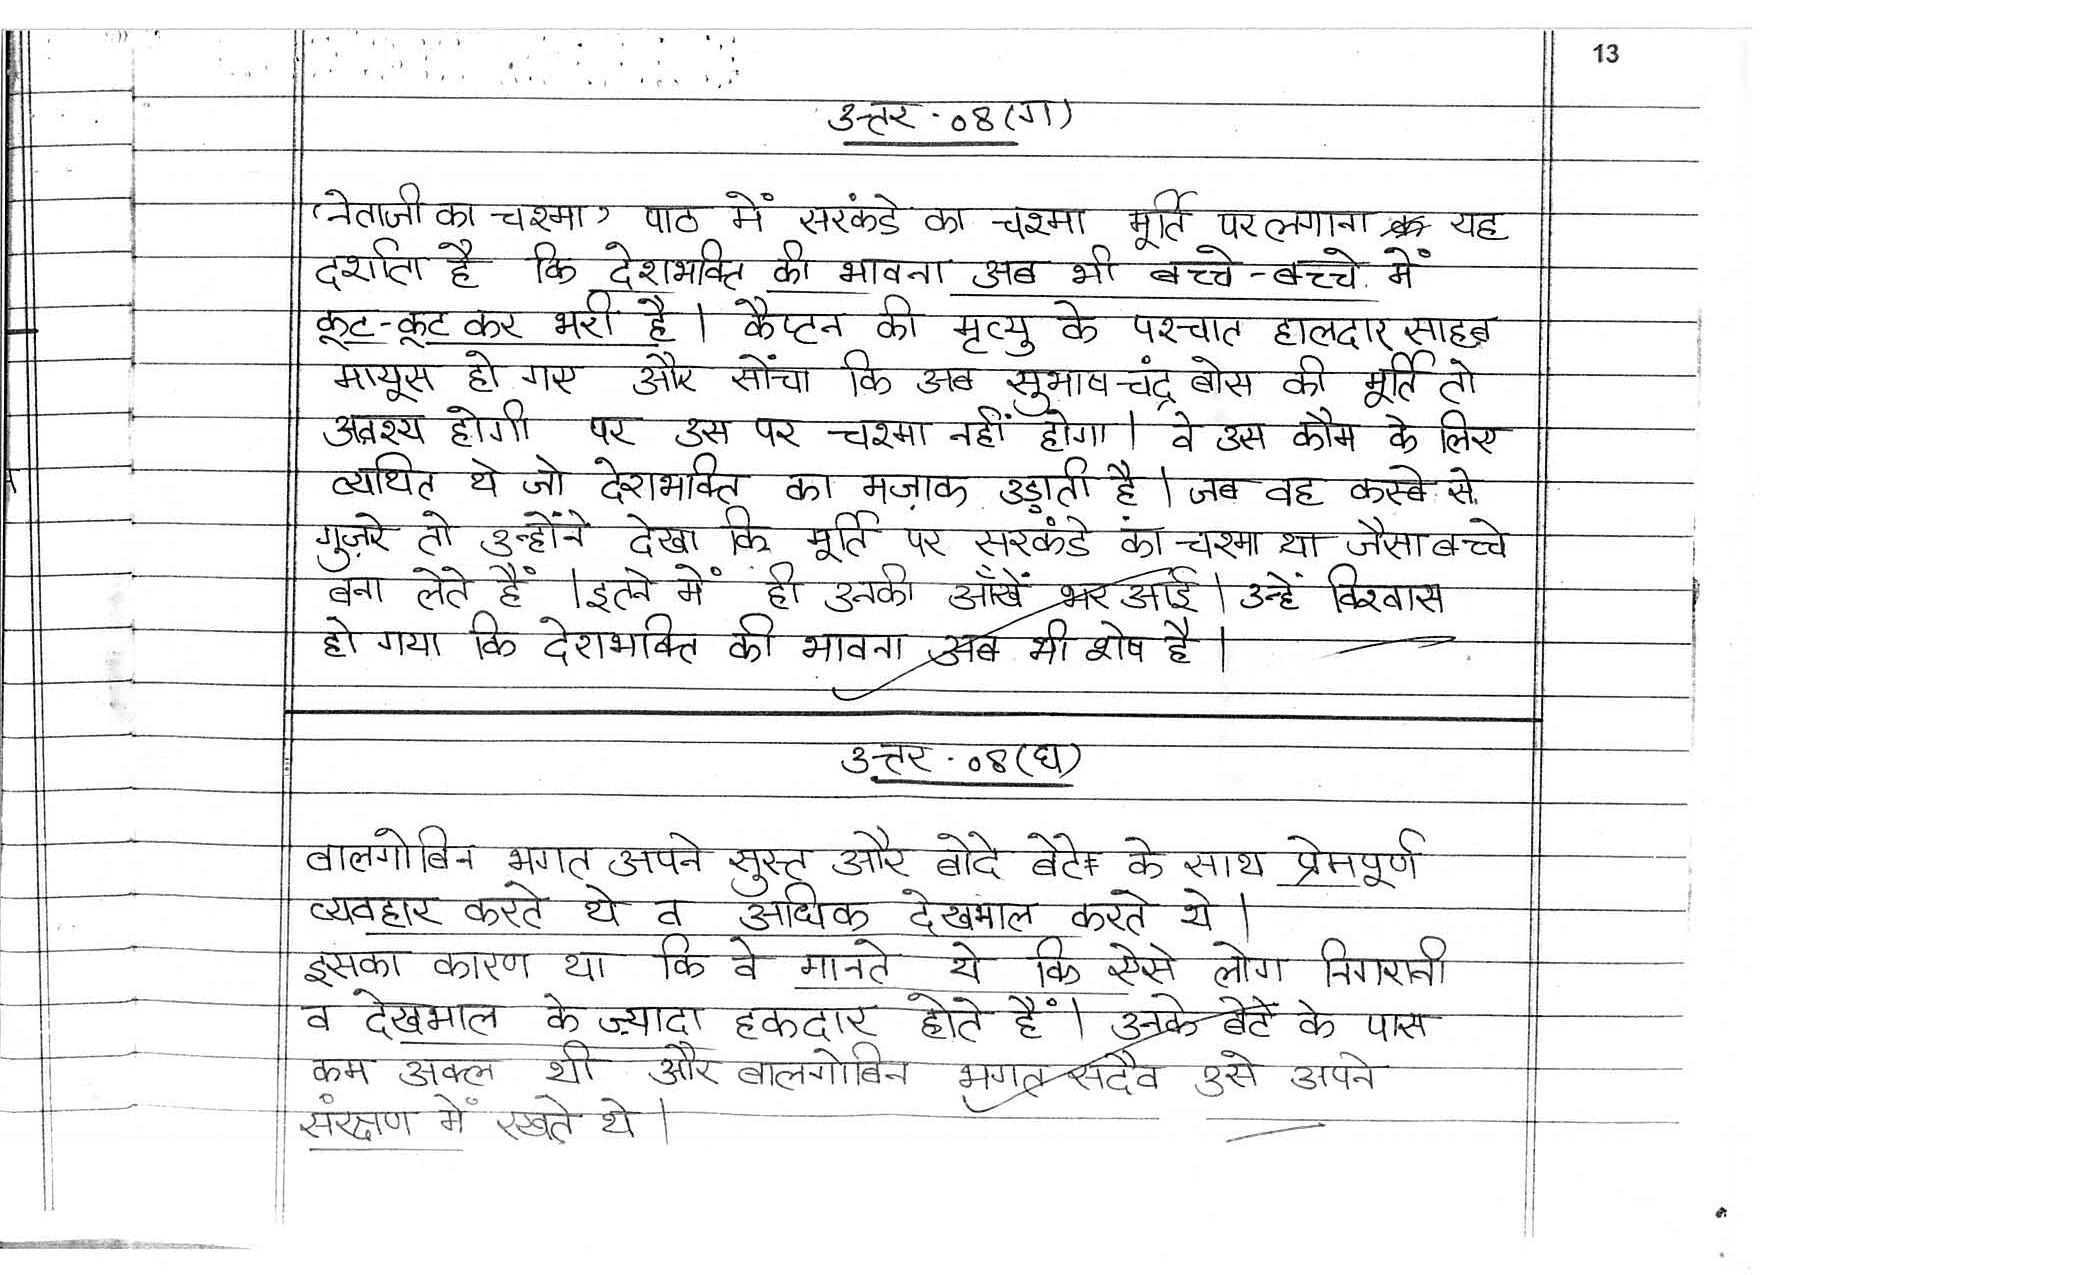 13
उत्तर - 08(ग)
'नेताजी का चश्मा' पाठ में सरकंडे का चश्मा मूर्ति पर लगाना यह
दर्शाता है कि देशभक्ति की भावना अब भी बच्चे-बच्चे में
कूट-कूट कर भरी है। कैप्टन की मृत्यु के पश्चात हालदार साहब
मायूस हो गए और सोंचा कि अब सुभाष चंद्र बोस की मूर्ति तो
अवश्य होगी पर उस पर चश्मा नहीं होगा। वे उस कौम के लिए
व्यथित थे जो देशभक्ति का मज़ाक उड़ाती है। जब वह कस्बे से
गुज़रे तो उन्होंने देखा कि मूर्ति पर सरकंडे का चश्मा था जैसा बच्चे
बना लेते हैं। इतने में ही उनकी आँखें भर आई। उन्हें विश्वास
हो गया कि देशभक्ति की भावना अब भी शेष है।
उत्तर - 08(घ)
बालगोबिन भगत अपने सुस्त और बोदे बेटे के साथ प्रेमपूर्ण
व्यवहार करते थे व अधिक देखभाल करते थे।
इसका कारण था कि वे मानते थे कि ऐसे लोग निगरानी
व देखभाल के ज़्यादा हकदार होते हैं। उनके बेटे के पास
कम अक्ल थी और बालगोबिन भगत सदैव उसे अपने
संरक्षण में रखते थे।